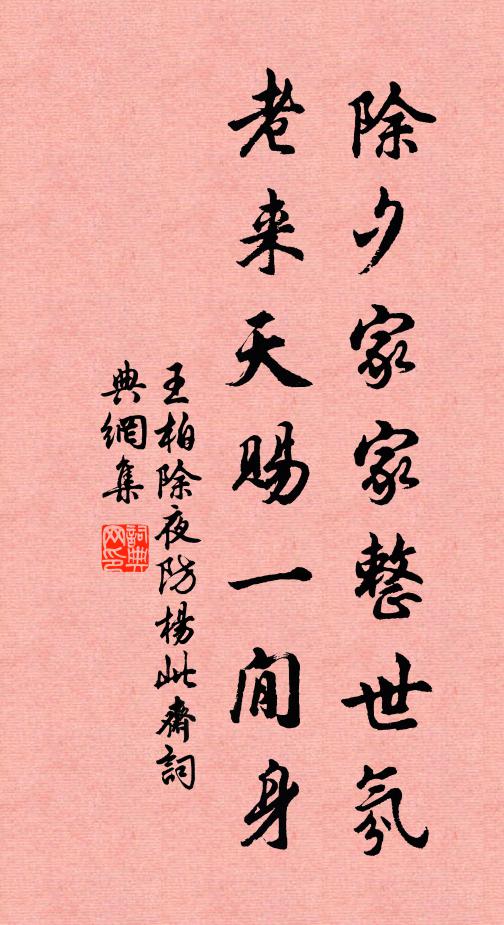 除夕家家整世氛
老来天賜一閒身
王柏除夜防楊此齋詞
典網集
詞典
网印